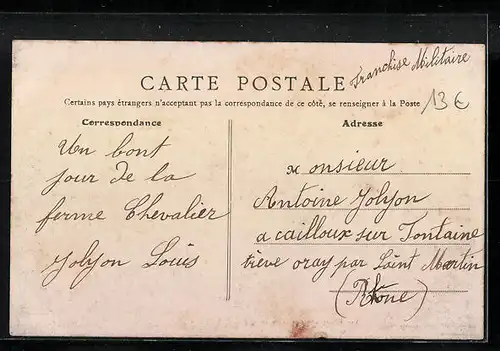 Franchise Militaire
CARTE POSTALE
Certains pays étrangers n'acceptant pas la correspondance de ce côté, se renseigner à la Poste
13€
Correspondance
Un bont
jour de la
ferme Chevalier
Jolyon Louis
Adresse
Monsieur
Antoine Jolyon
a cailloux sur Fontaine
par Saint Martin
(Rhône)